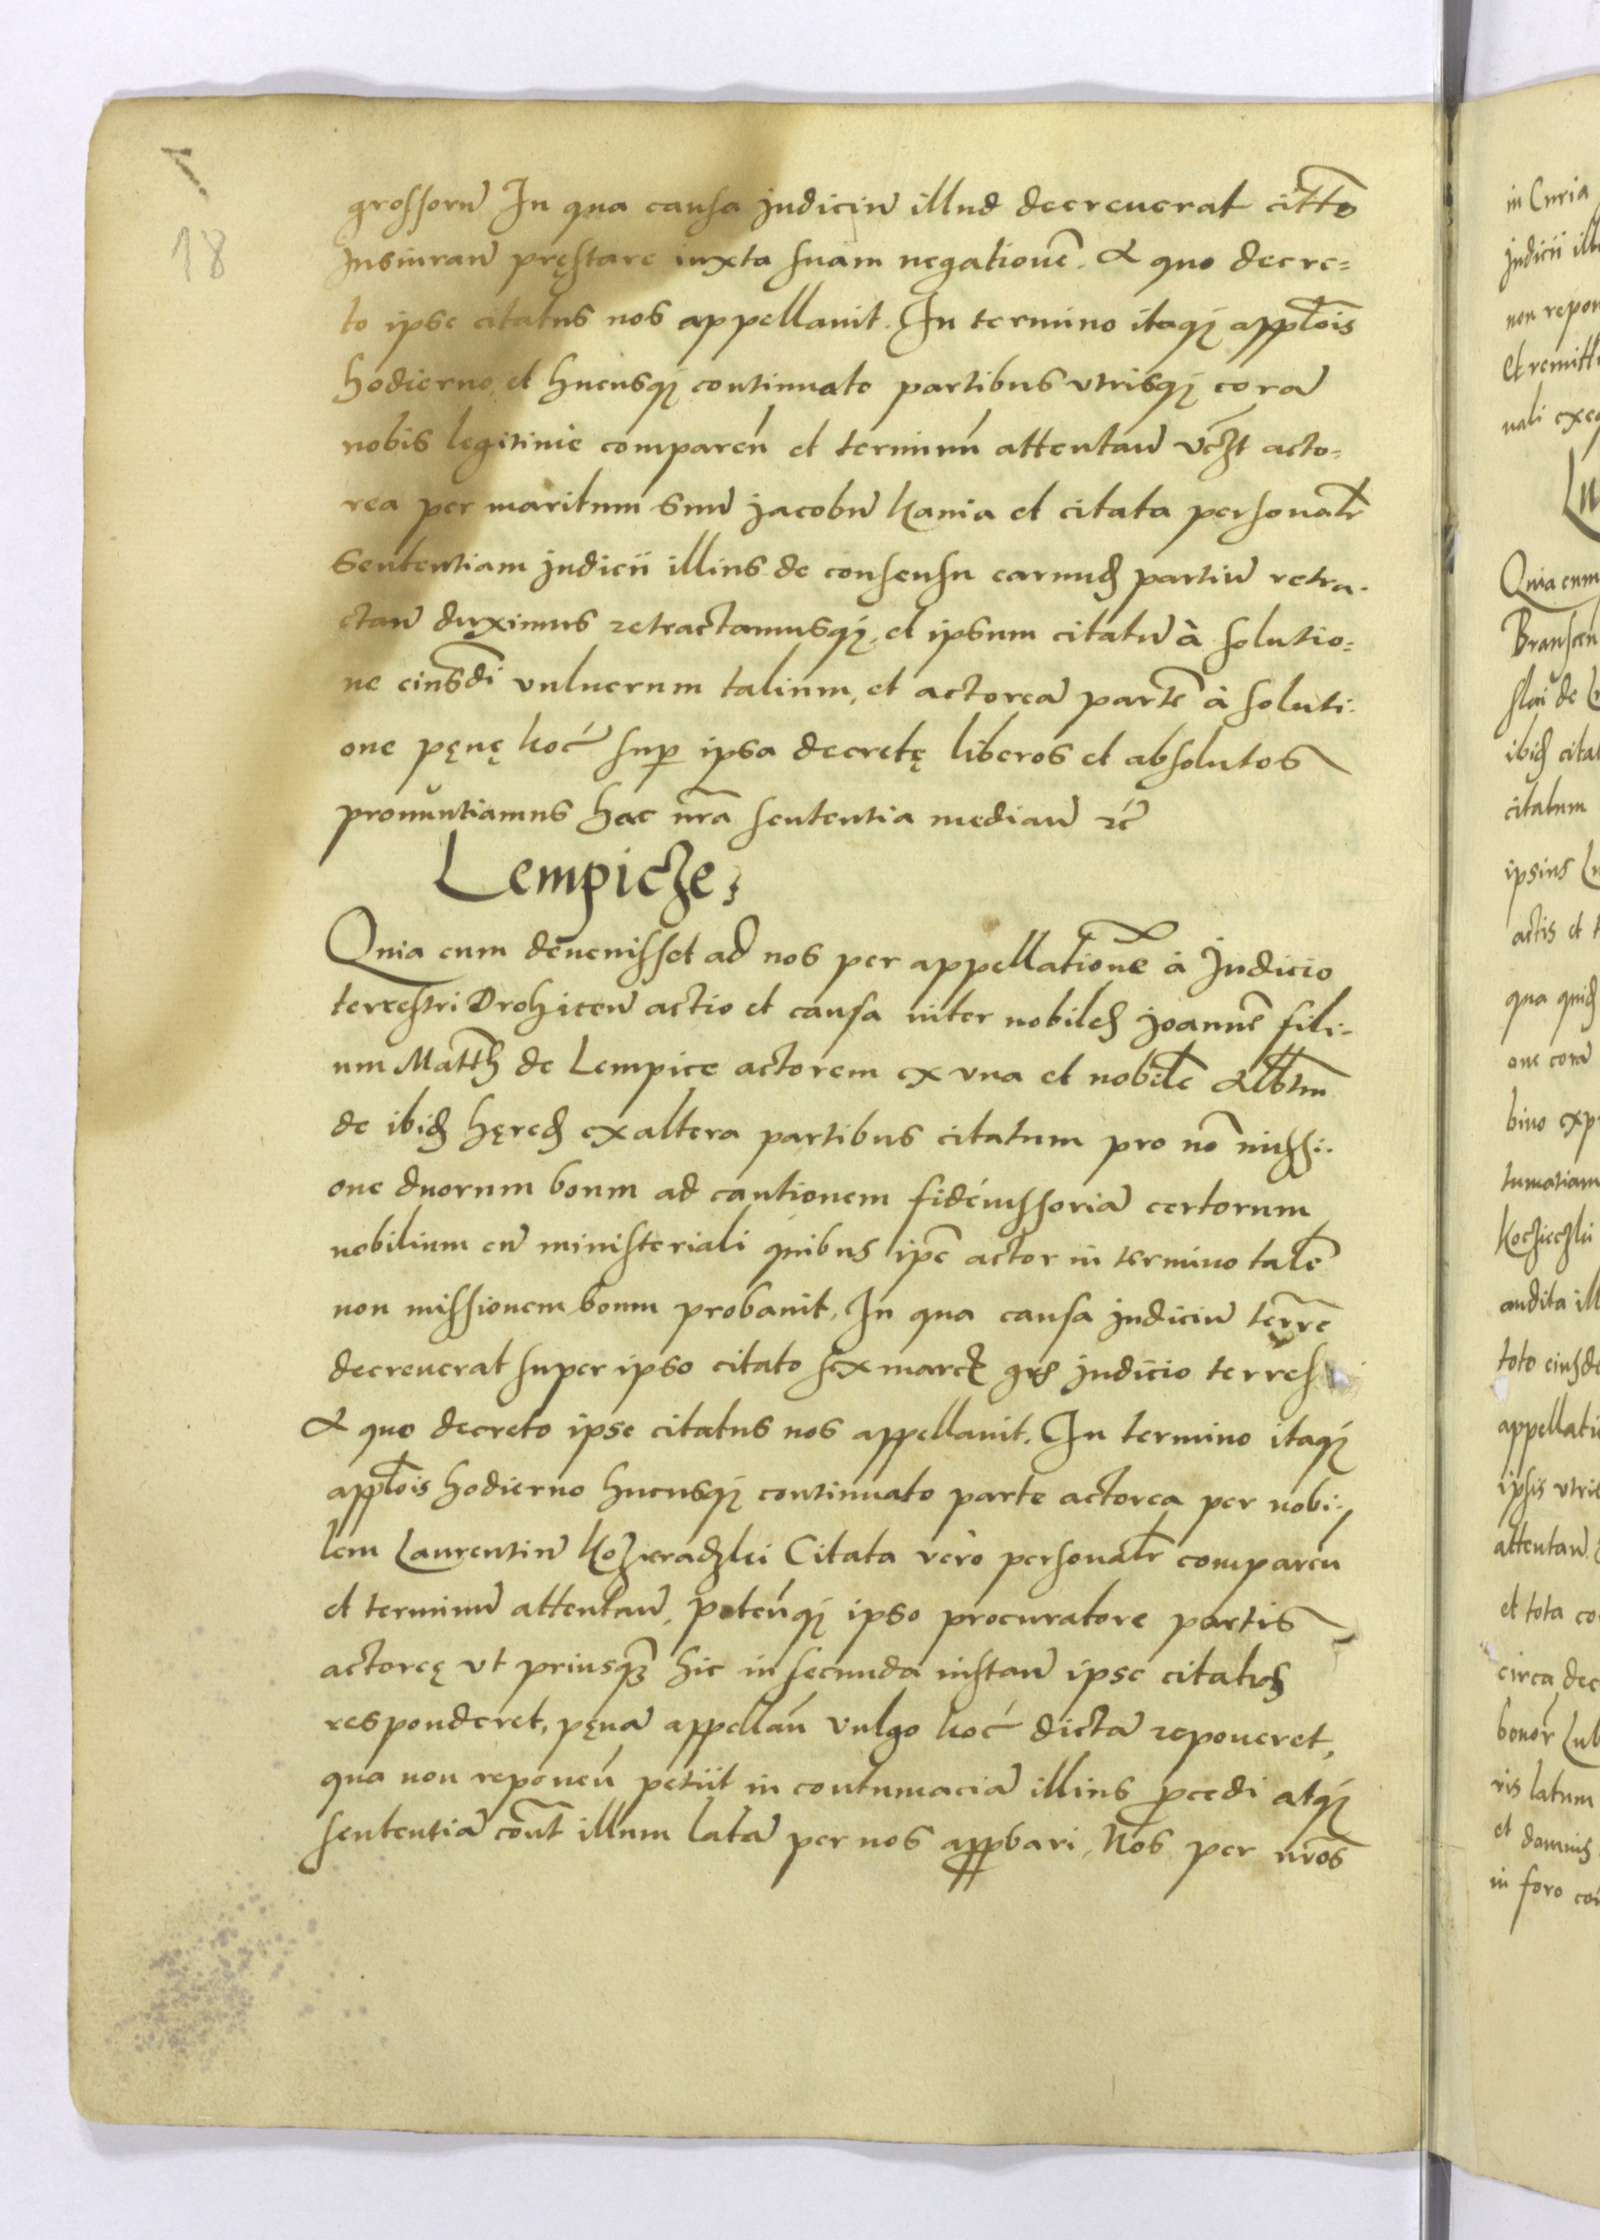 18
grossorū In qua causa judiciū illud decreverat citto
Insiuraū pręstare iuxta suam negationē. A quo decre=
to ipse citatus nos appellavit. In termino itaqȝ applōis
hodierno et hucusqȝ continuato partibus vtrisqȝ corā
nobis legitime compareñ et terminū attentaū vcȝt acto=
rea per maritum suū Jacobū Kania et citata personalr̄
Sententiam judicii illius de consensu earundȝ partiū retra-
ctaū duximus retractamusqȝ, et ipsum citatū à solutio=
ne eiusdī vulnerum talium, et actoreā partē à soluti-
one pęnę koć sup ipsa decretę liberos et absolutos
pronuntiamus hac nrā sententia mediaū rć
Lempicze;
Quia cum devenisset ad nos per appellationē à Judicio
terrestri Drohiceñ actio et causa inter nobiles Joannē fili-
um Matthȝ de Lempice actorem ex vna et nobilē Albtm̄
de ibidȝ hęredȝ ex altera partibus citatum pro nō missi-
one duorum boum ad cautionem fideiussoriā certorum
nobilium cū ministeriali quibus ipē actor in termino talē
non missionem boum probavit, In qua causa judiciū terrē
decreverat super ipso citato sex marcȝ grȝ judicio terres
A quo decreto ipse citatus nos appellavit. In termino itaqȝ
applōis hodierno hucusqȝ continuato parte actorea per nobi-
lem Laurentiū Kozieradzki Citata vero personalr̄ compareñ
et terminū attentaū, peteñqȝ ipso procuratore partis
actoreę vt priusqȝ hic in secunda instaū ipse citatus
responderet, pęnā appellañ vulgo koć dictā reponeret,
qua non reponeñ petiit in contumaciā illius procedi atqȝ
sententiā cont̄ illum latā per nos approbari, Nos per nrōs
in Curia
judicii ill
non repon
Et remitt
nali exeq
Lu
Quia cum
Bransceñ
ibidȝ citat
citatum
ipsius Lu
actis et
qua quidȝ
one corā
bino exp
tumatiam
audita ill
toto eiusde
appellati
ipsis vtris
attentaū
et tota co
circa dec
bonor̄ Lub
ris latum
et damnis
in foro cō